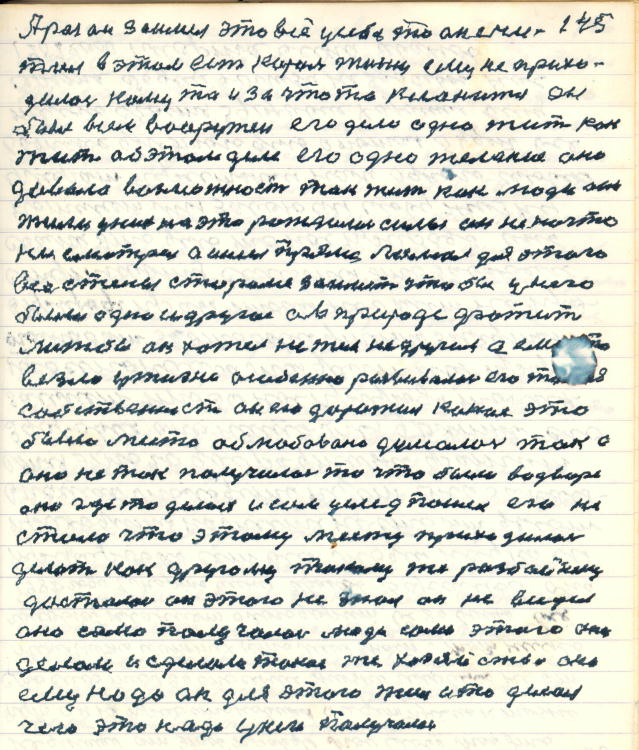 А раз он занял это всё у себя то он ени- 145
тил в этом ест карол жизни ему не прихо-
дилос кому та и за что то кланится он
был всем вооружен его дело одно жит как
жит об этом деле его одно желание оно
давала возможност так жит как люди они
жили у них на это рождалис силы он не на что
не смотрел а шел прямо ломал для этого
все стены старался занят что бы у него
было одно и другое а в природе
он хотел не тем не другим а ему
везло в жизни особенно развивалос его
собственност он ею дорожил какие это
было место облюбовано думалос так а
оно не так получилос то что было во дворе
оно где то делос и сам уследпошел его не
стало что этому месту приходилос
делат как другому такому же разбойнику
досталос он этого не знал он не видел
оно само получалос люди сами этого
делали и сделали такое же хозяйство оно
ему надо он для этого жил и то делал
чего это надо у него получалос